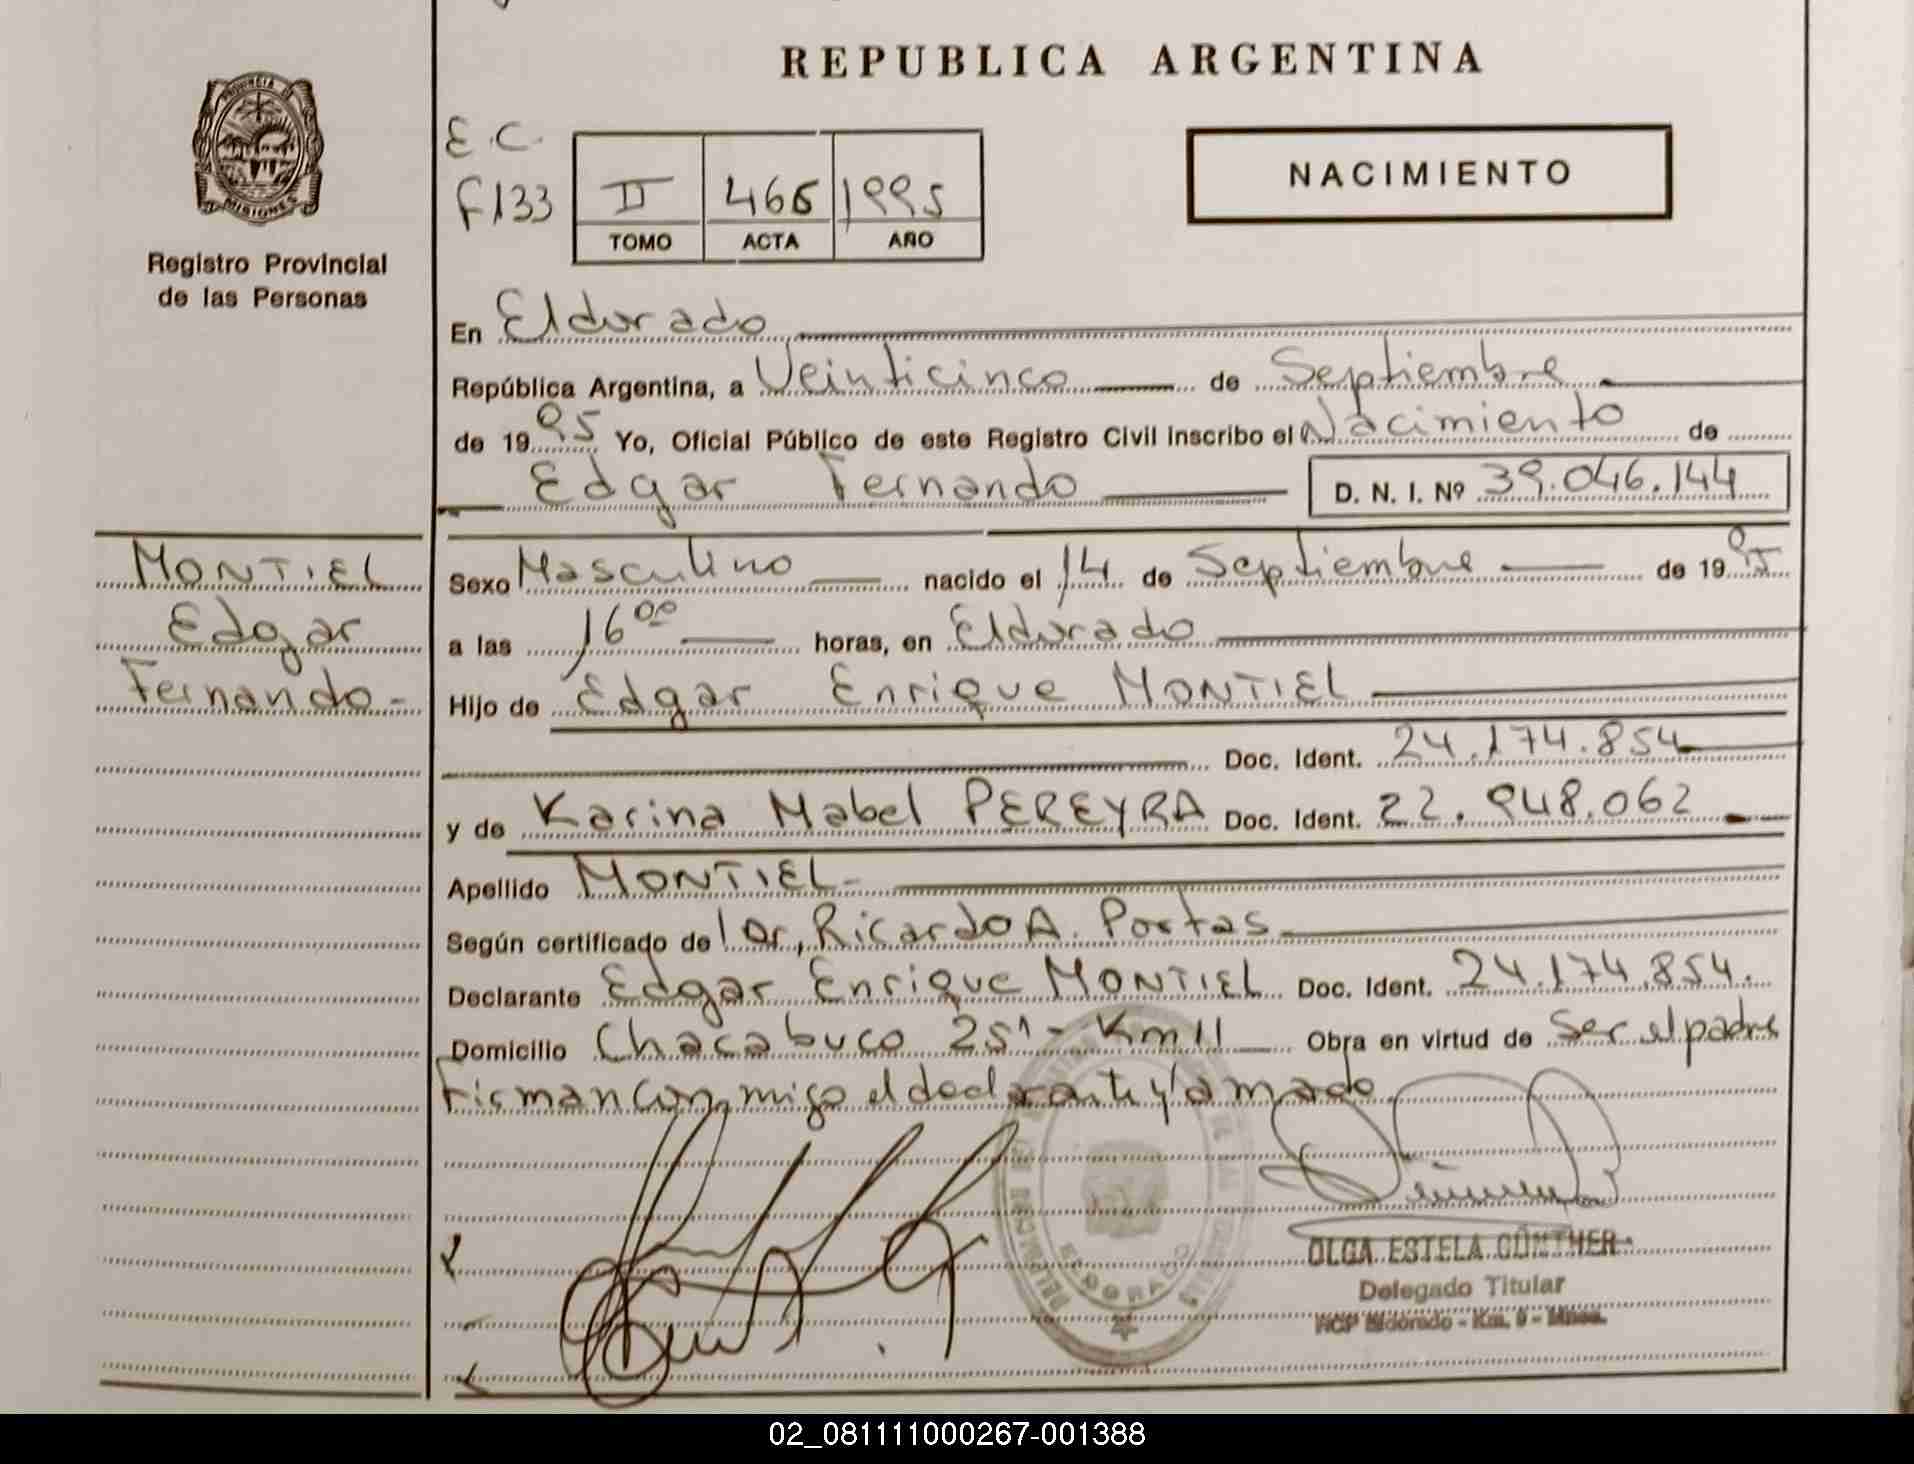 REPUBLICA ARGENTINA
PROVINCIA DE
MISIONES
Registro Provincial
de las Personas
E.C.
F133
II 466 1995
TOMO ACTA AÑO
NACIMIENTO
En Eldorado
República Argentina, a Veinticinco de Septiembre
de 1995 Yo, Oficial Público de este Registro Civil inscribo el Nacimiento de
Edgar Fernando D. N. I. Nº 39.046.144
MONTIEL
Edgar
Fernando-
Sexo Masculino nacido el 14 de Septiembre de 1995
a las 16 00 horas, en Eldorado
Hijo de Edgar Enrique MONTIEL
Doc. Ident. 24.174.854
y de Karina Mabel PEREYRA Doc. Ident. 22.948.062
Apellido MONTIEL-
Según certificado de Dr, Ricardo A. Portas
Declarante Edgar Enrique MONTIEL Doc. Ident. 24.174.854.
Domicilio Chacabuco 251 - Km 11 Obra en virtud de Ser el padre
Firman conmigo el declarante y
OLGA ESTELA GÜNTHER
Delegado Titular
RCP Eldorado - Km. 9 - Mnes.
ELDORADO
02_081111000267-001388